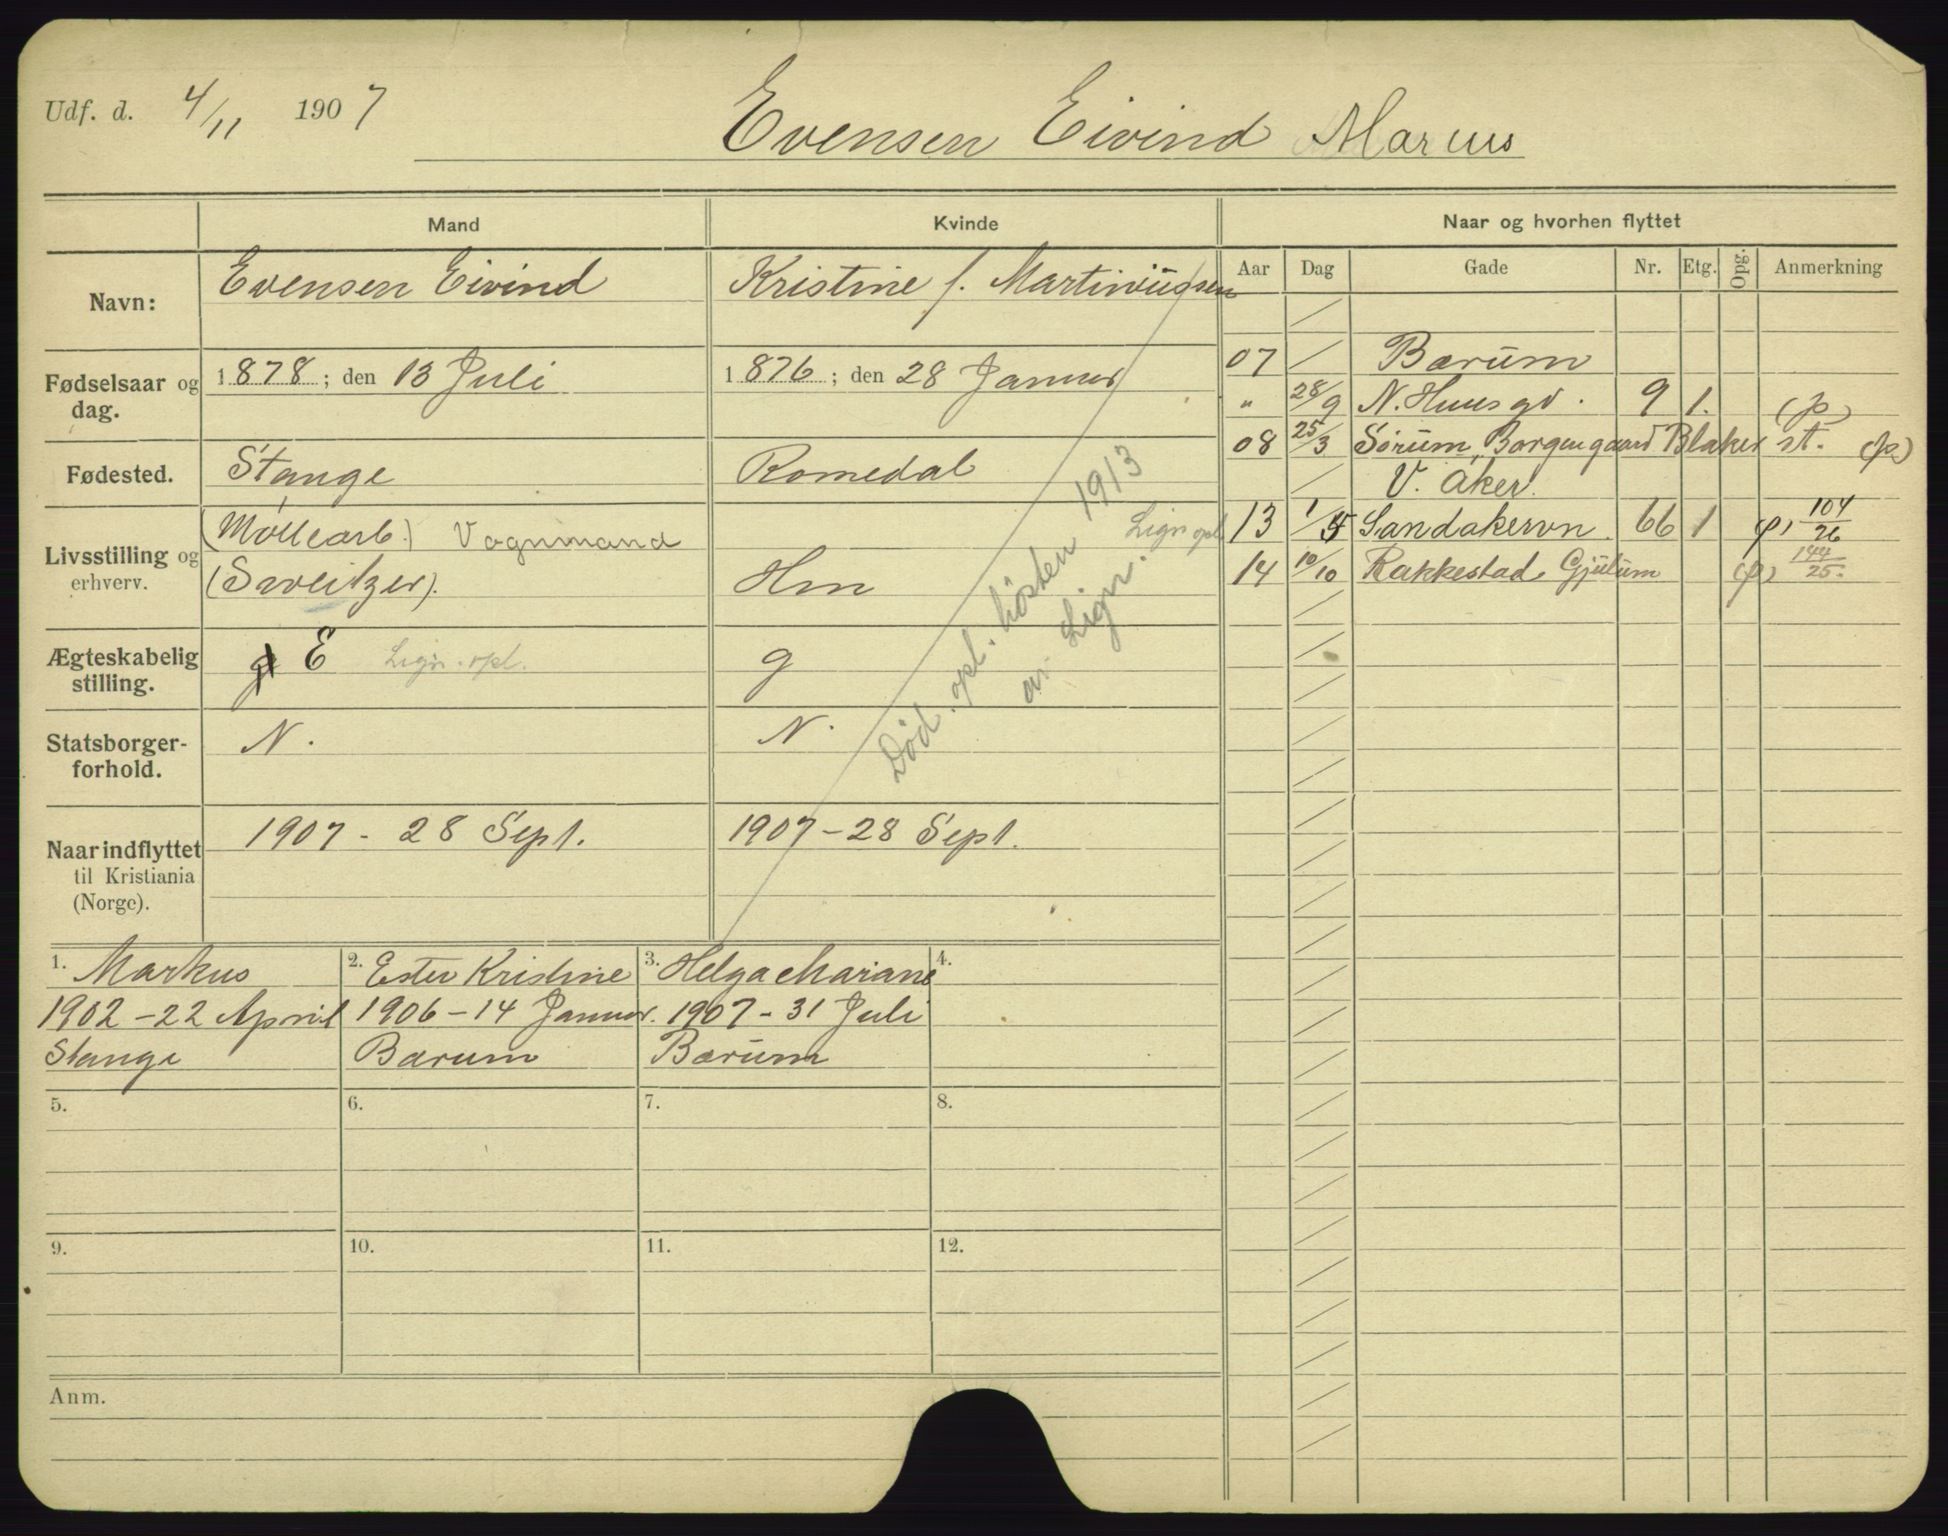 Udf. d. 4/11 1907
Evensen Eivind Marcus
Mand
Kvinde
Naar og hvorhen flyttet
Navn:
Evensen Eivind
Kristine f. Martiniussen
Fødselsaar og dag.
1878; den 13 Juli
1876; den 28 Januar
Fødested.
Stange
Romedal
Livsstilling og erhverv.
(Möllearb.) Vognmand
(Sveitzer).
Lign opl
Hm
Ægteskabelig stilling.
g E Lign. opl.
g
Statsborgerforhold.
N.
N.
Naar indflyttet til Kristiania (Norge).
1907 - 28 Sept.
1907 - 28 Sept.
Död. opl. hösten 1913
av Lign.
1. Markus
1902 - 22 April
Stange
2. Ester Kristine
1906 - 14 Januar.
Bærum
3. Helga Mariane
1907 - 31 Juli
Bærum
4.
5.
6.
7.
8.
9.
10.
11.
12.
Anm.
Aar Dag Gade Nr. Etg. Opg. Anmerkning
07 / Bærum
" 28/9 N. Huusgd. 9 1. (p)
08 25/3 Sörum, Borgengaard Blaker st. (p)
/ V. Aker.
13 1/5 Sandakervn. 66 1 (p) 104/26
14 10/10 Rakkestad Gjülüm (p) 144/25.